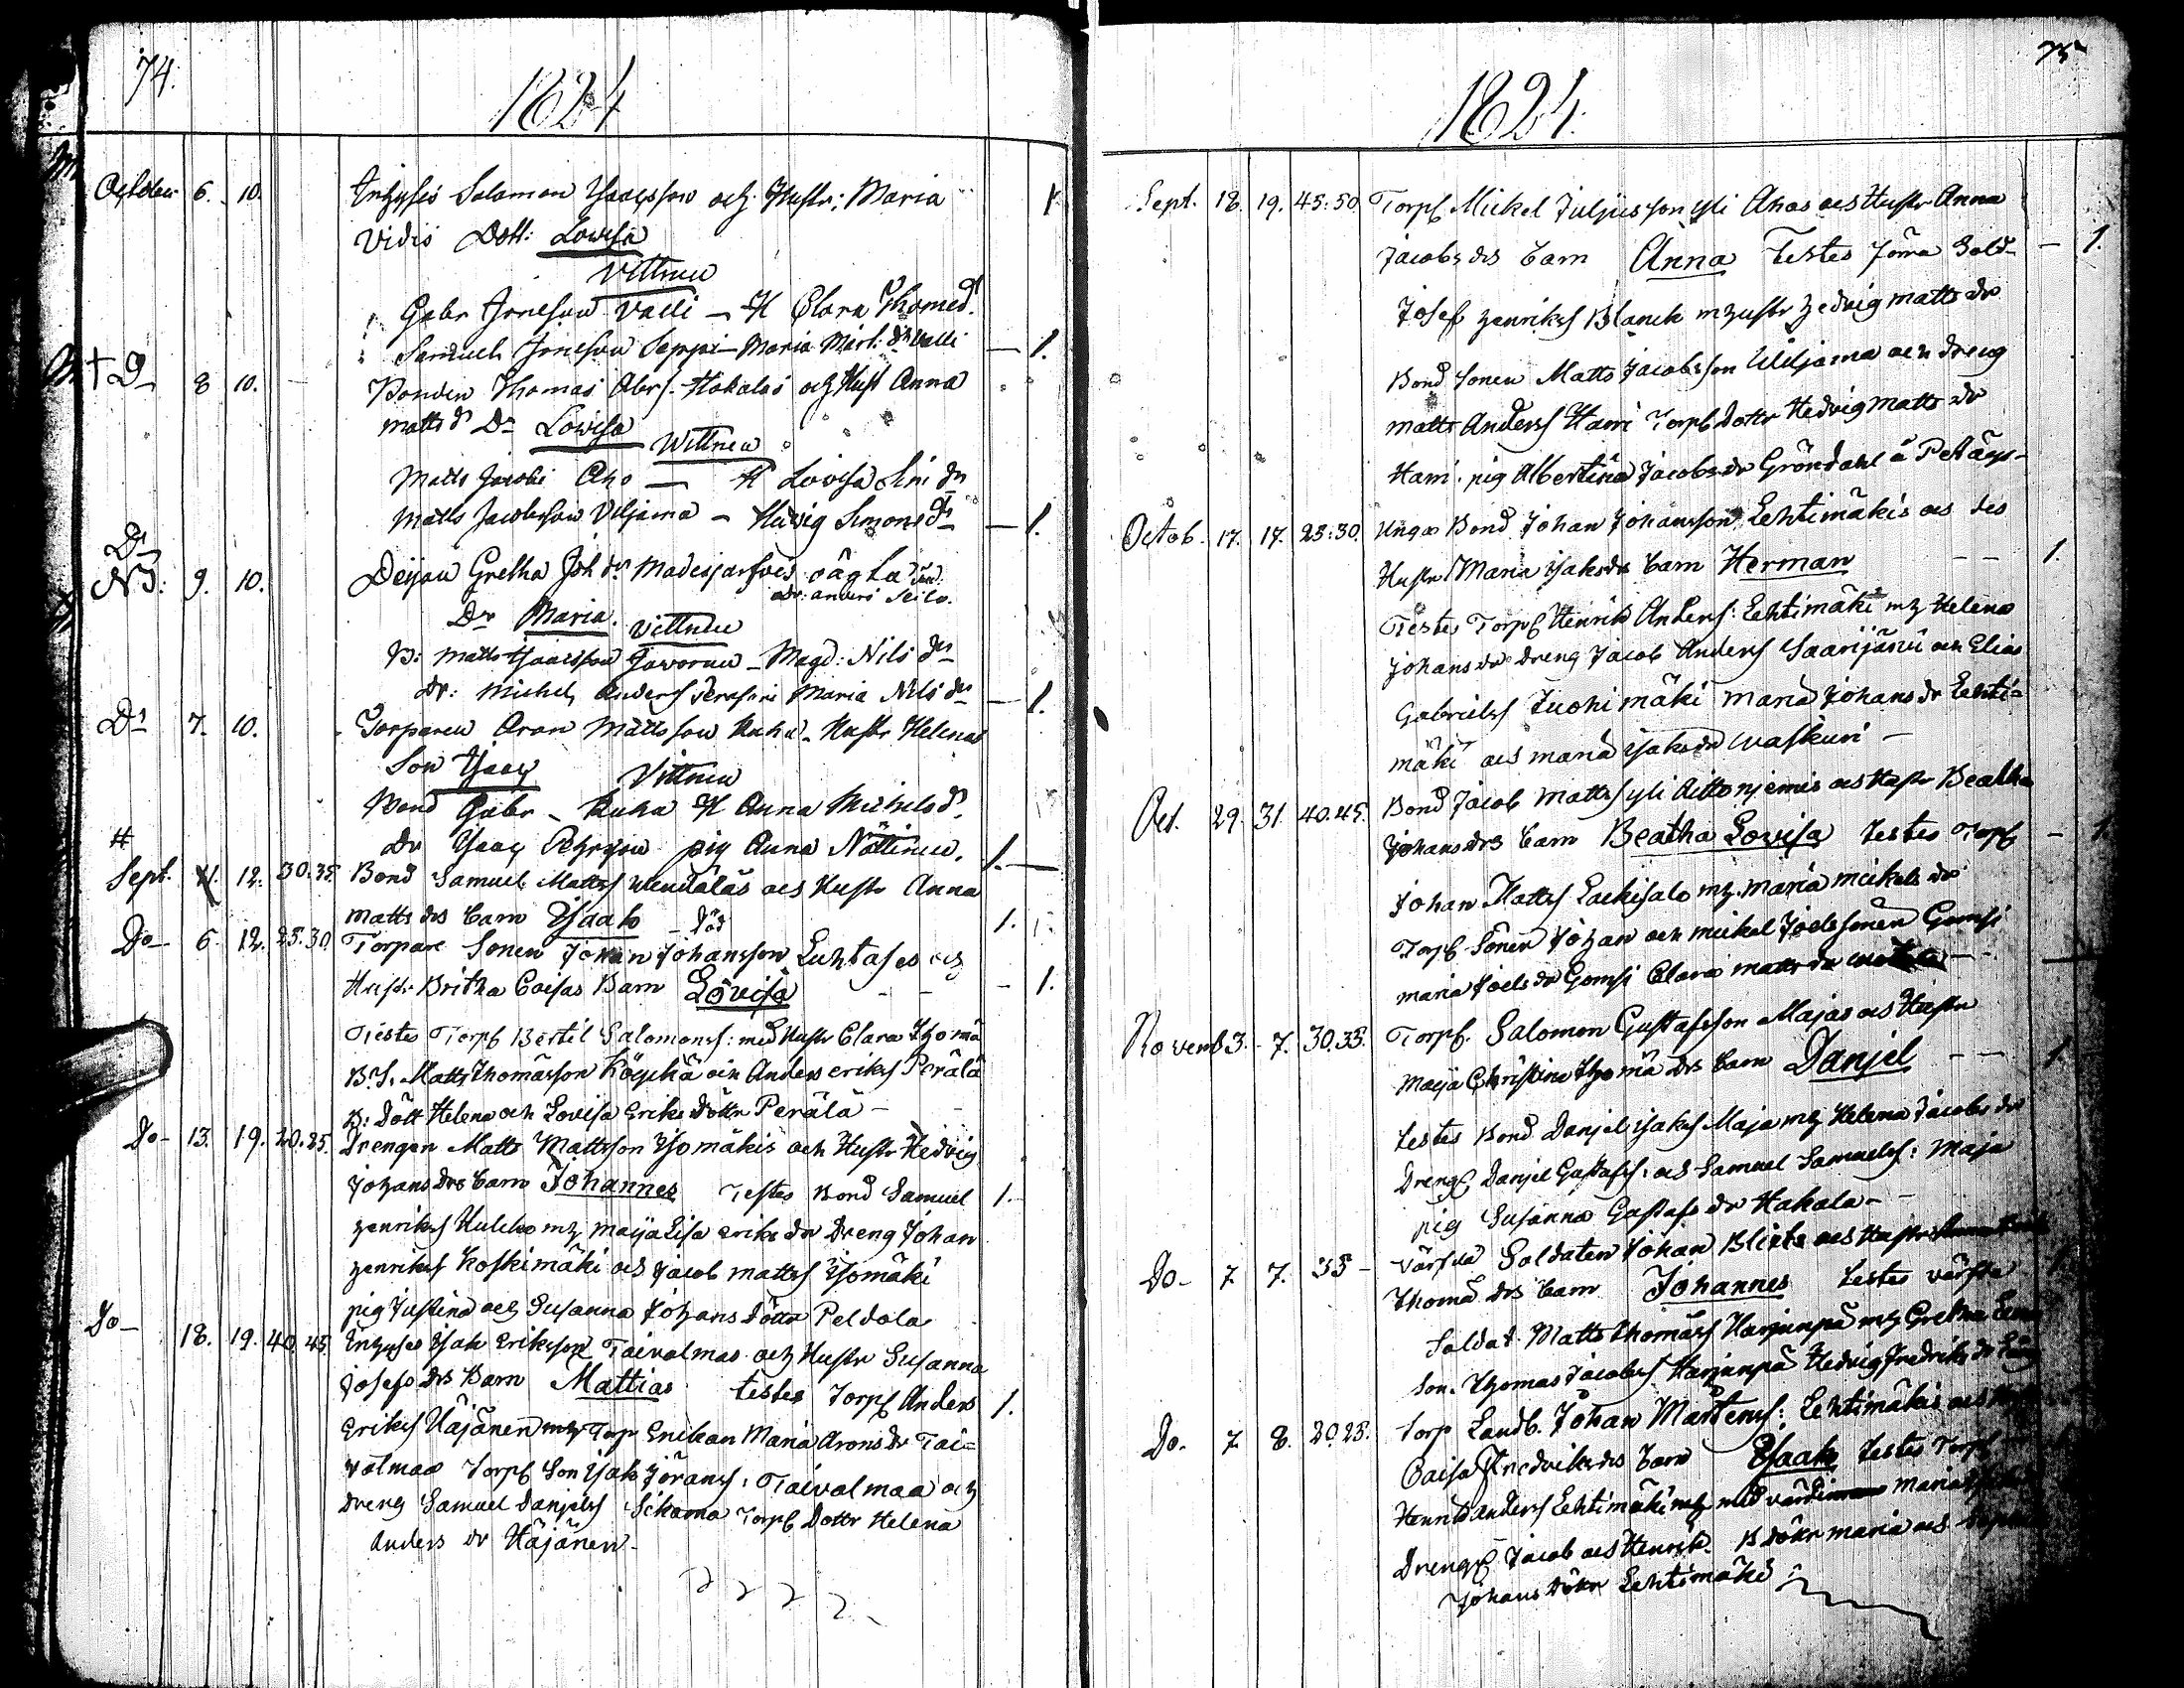 74.
1824
October 6. 10. Inhyses Salomon Isacsson och Hustr: Maria 1
Vidis Dott: Lovisa
Vittnen
Gabr Joneson Valli — H Clara Thomed.
Samuel Joneson Seppi — Maria Mårt: dr Valli — 1.
† D 8 10. Bonden Thomas Abrs. Hakalas och Hust Anna
Matts dr Dr Lovisa
Wittnen
Matts Jacobs Aho — H Lovisa Sim dr
Matts Jacobsson Viljama — Hedvig Simons dr — 1.
Do
NB: 9. 10. Deijan Gretha Joh dr Madesjarfves oägta
adr: anders Seilo.
Dr Maria. Vittnen
B: Matts Isacsson Jwornen — Magd: Nils dr
Dr: Michel Anders Maria Nils dr — 1.
Do 7. 10. Torparen Aron Mattsson Kuha — Hustr Helena
Son Isac Vittnen
Bond Gabr — Kuha H Anna Michelsdr.
Dr Isac pig Anna Nättinen. 1.
#
Sept. 11. 12. 30.35. Bond Samuel Mattss Wendäläs ock Hustr Anna
Matts drs barn Isaak — Död 1.
Do — 6. 12. 25.30. Torpare Sonen Johan Johansson Luhtases och
Hustr Britha Caisas Barn Lovisa — — — 1.
Testes Torp Bertil Salomonss: med Hustr Clara Thomä
B.S. Matts Thomasson Köykkä och Anders Eriks Perälä
B: Dött Helena och Lovisa Eriks Döttr Perälä —
Do — 13. 19. 20.25. Drengen Matts Mattsson Isomäkis och Hustr Hedvig
Johans Drs barn Johannes Testes Bond Samuel 1.
Henrikss Hulkko mh Maija Lisa Eriks dr Dreng Johan
Henrikss Koskimäki och Jacob Mattss Isomäki
pig Justina och Susanna Johans Döttr Peldola
Do — 18. 19. 40.45. Inhyses Isak Eriksson Taivalmas och Hustr Susanna
Josefs Drs Barn Mattias testes Torp Anders 1.
Erikss Häjänen mh Torp Enckan Maria Arons Dr Tai=
valmaa Torp Son Isak Jöranss: Taivalmaa och
Dreng Samuel Danjelss Sikama Torp Dottr Helena
Anders Dr Häjänen —
75
1824.
Sept. 18. 19. 45:50. Torp Mickel Juljusson yli Ahos och Hustr Anna
Jacobs drs barn Anna Testes Förra Sold — 1.
Josef Henrikss Blanck m hustr Hedvig Matts dr
Bond Sonen Matts Jacobsson Wiljama och Dreng
Matts Anderss Harri Torp Dottr Hedvig Matts dr
Harri. pig Albertina Jacobs dr Gröndahl å Petäys —
Octob. 17. 17. 25:30. Unga Bond Johan Johansson Lehtimäkis och des
Hustr Maria Isaks dr barn Herman — — 1.
Testes Torp Henrik Anderss: Lehtimäki mh Helena
Johans dr Dreng Jacob Anderss Saarijärvi och Elias
Gabrielss Tuohimäki Maria Johans dr Lehti=
mäki och Maria Isaks dr Waskuri —
Oct. 29. 31. 40.45. Bond Jacob Mattss yli Aittonjemis och Hustr Beatha
Johans Drs barn Beatha Lovisa testes Torp — 1.
Johan Mattss Lackisalo mh. Maria Mickels dr
Torp Sönen Johan och Mickel Joelssöner Gomsi
Maria Joels dr Gomsi Clara Matts dr — —
Novemb 3. 7. 30.35. Torp. Salomon Gustafsson Majas och Hustr
Maija Christina Thomä Drs barn Danjel — — 1.
testes Bond Danjel Isaks Maja mh Helena Jacobs dr
Dreng Danjel Gustafss: och Samuel Samuelss: Maja
pig Susanna Gustafs dr Hakala —
Do — 7. 7. 35 — Värfda Soldaten Johan Blixts och Hustr
Thomä drs barn Johannes testes värfda
Soldat Matts Thomäss Harjunpä mh Gretha
Son. Thomas Jacobss. Harjunpä Hedvig Fredriks dr
Do. 7. 8. 20.25. Torp Landb. Johan Mårtenss: Lehtimäkis och
Caisa Fredriks drs barn Isaak testes Torp
Henrik Anderss Lehtimäki mh med värdinnan Maria
Dreng Jacob och Henrik. B Döttr Maria och
Johans Döttr Lehtimäki